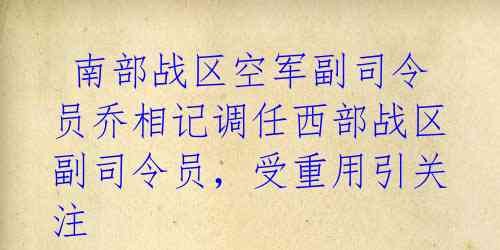 南部战区空军副司令
员乔相记调任西部战区
副司令员，受重用引关
注